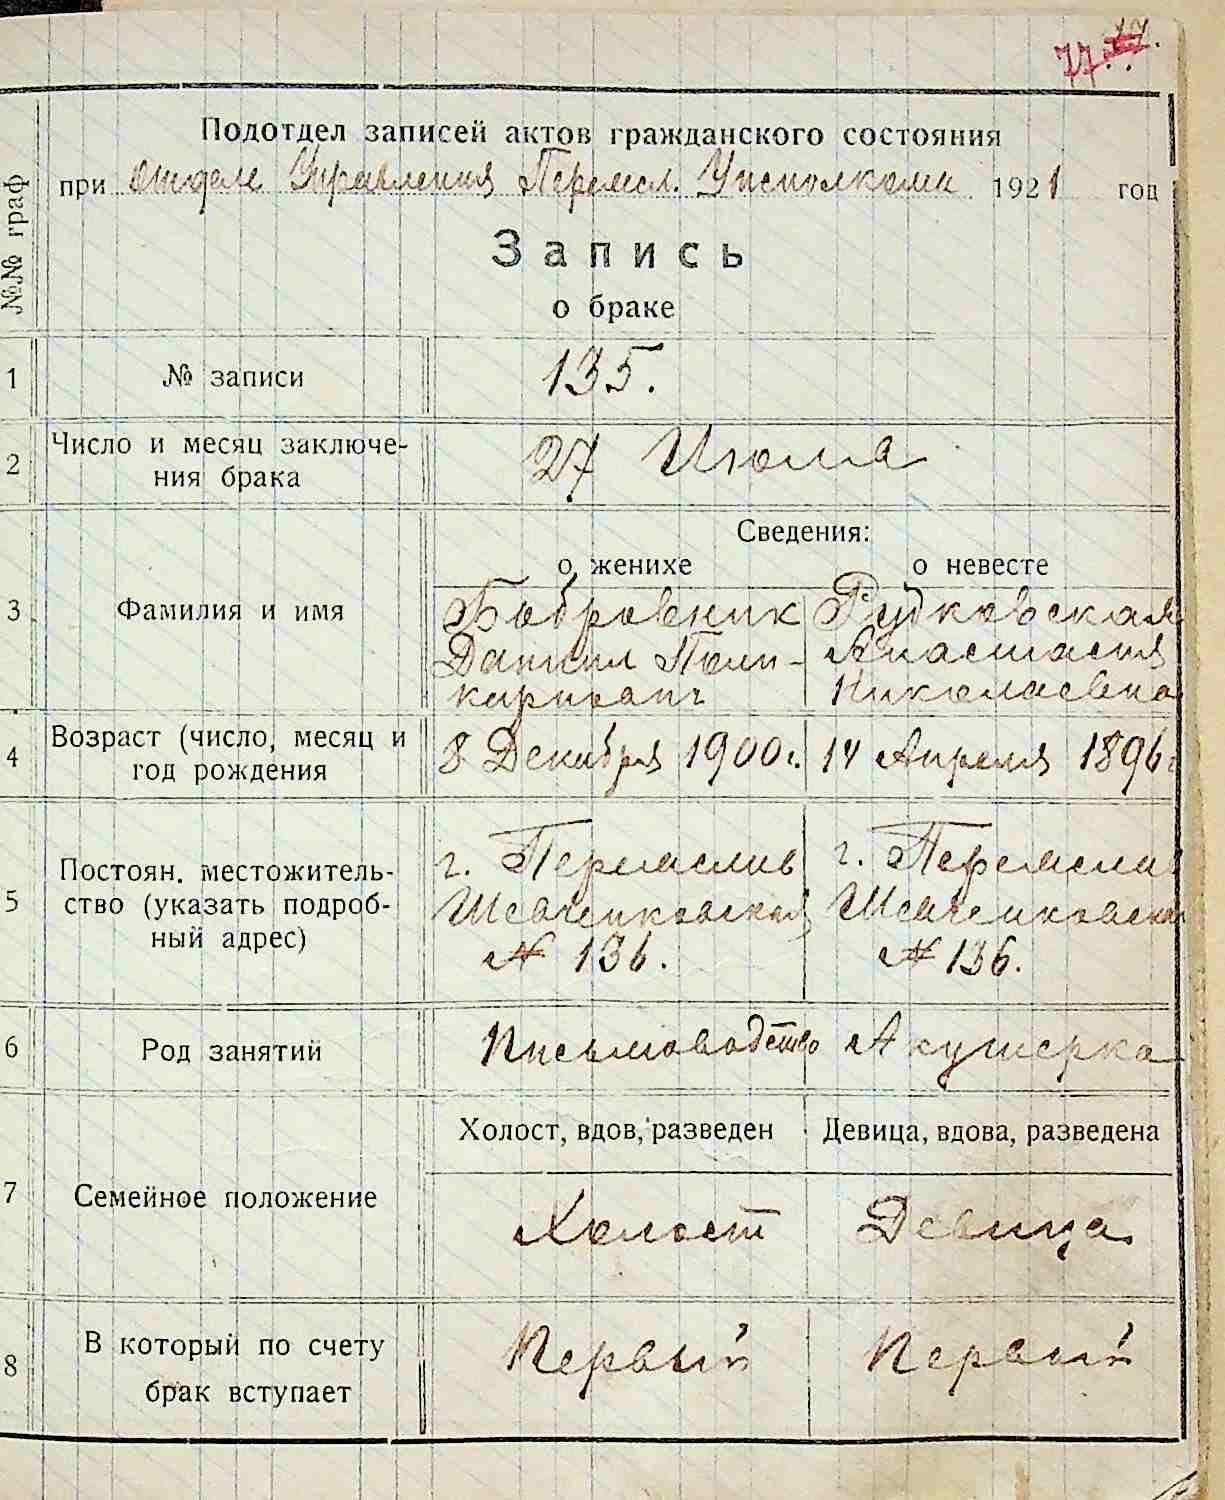 77.
Подотдел записей актов гражданского состояния
при Отделе Управления Переясл. Уисполкома 1921 год
№№ граф
Запись
о браке
1 № записи 135.
2 Число и месяц заключе-
ния брака 27 Июля
Сведения:
о женихе о невесте
3 Фамилия и имя Бобровник Рудковская
Даниил Поли- Анастасия
карпович Николаевна
4 Возраст (число, месяц и
год рождения 8 Декабря 1900 г. 14 Апреля 1896 г
5 Постоян. местожитель-
ство (указать подроб-
ный адрес)
г. Переяслив г. Переяслив
Шевченковская Шевченковская
№ 136. № 136.
6 Род занятий Письмоводство Акушерка
Холост, вдов, разведен Девица, вдова, разведена
7 Семейное положение Холост Девица
8 В который по счету
брак вступает Первый Первый